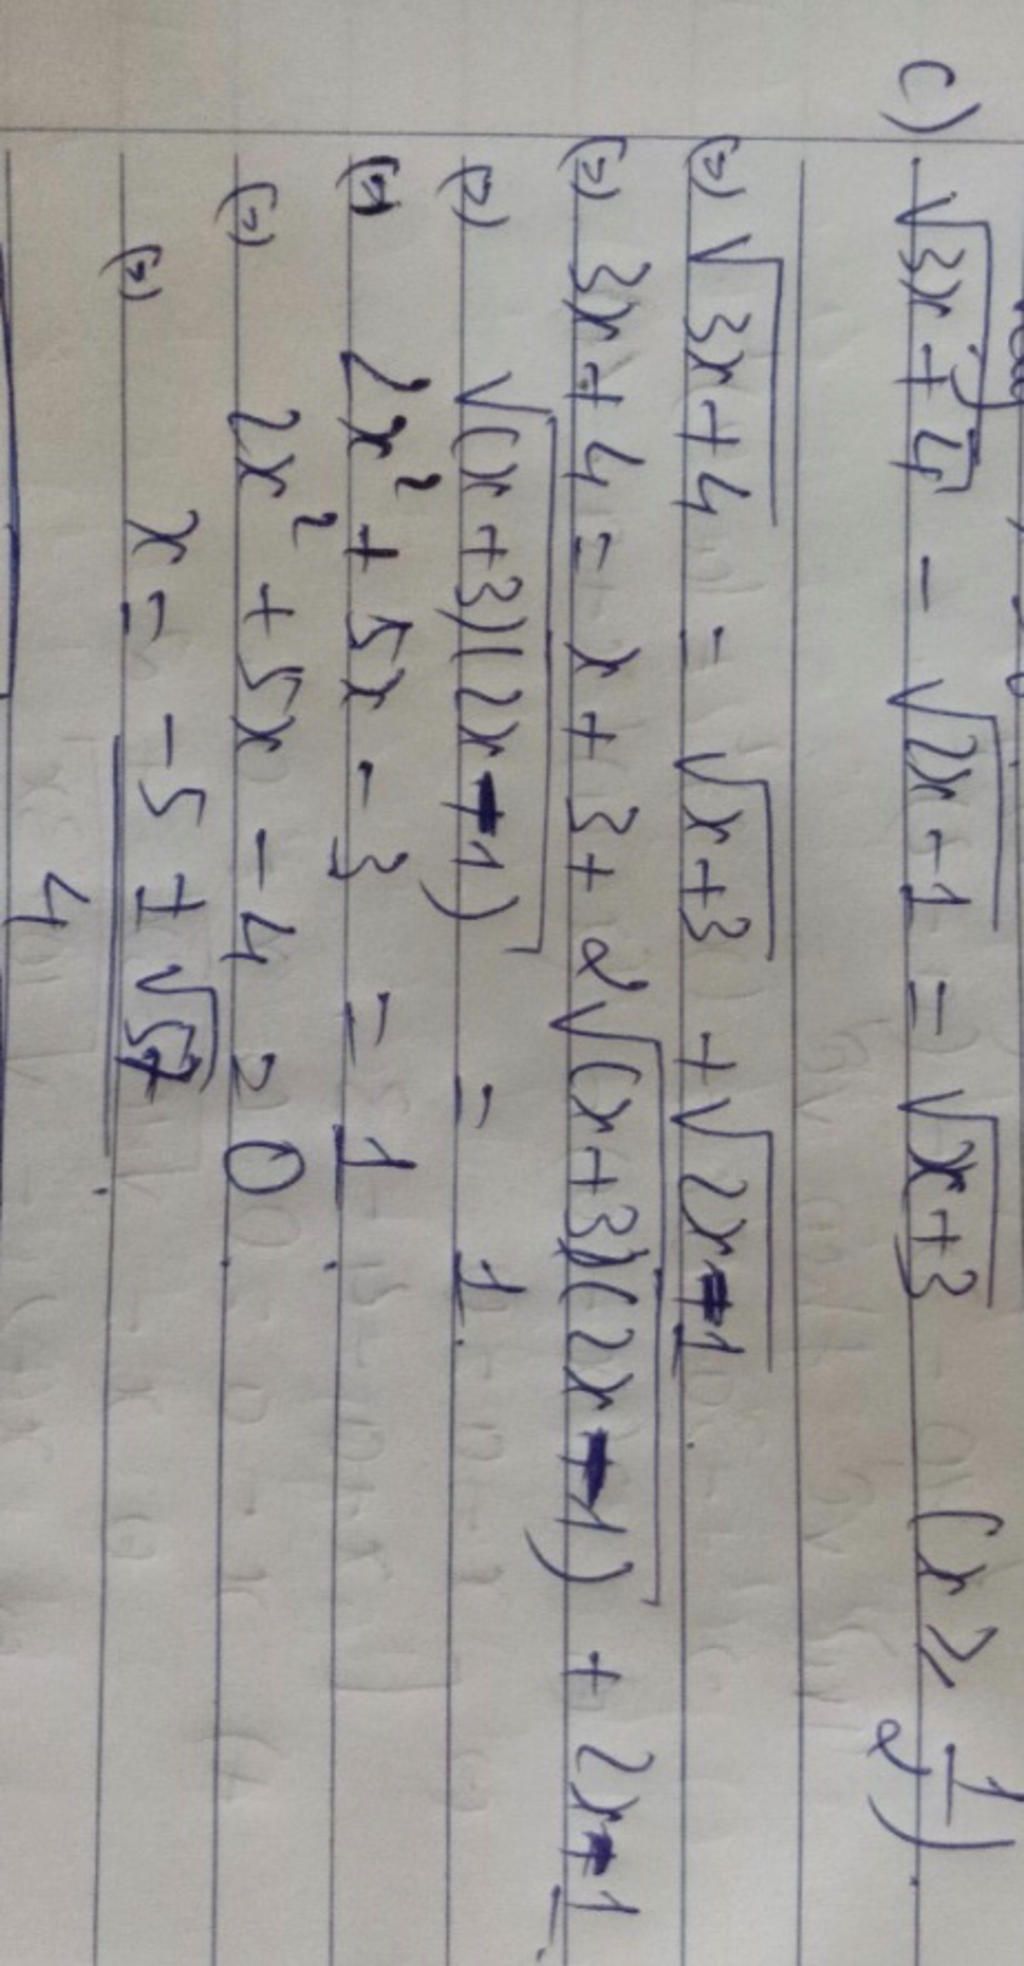 c) √(3x+4) - √(2x-1) = √(x+3) (x ≥ 1/2).
(=) √(3x+4) = √(x+3) + √(2x-1).
(=) 3x+4 = x+3+2√((x+3)(2x-1)) + 2x-1.
(=) √((x+3)(2x-1)) = 1.
(=) 2x² + 5x - 3 = 1.
(=) 2x² + 5x - 4 = 0.
(=) x = (-5 ± √57)/4.